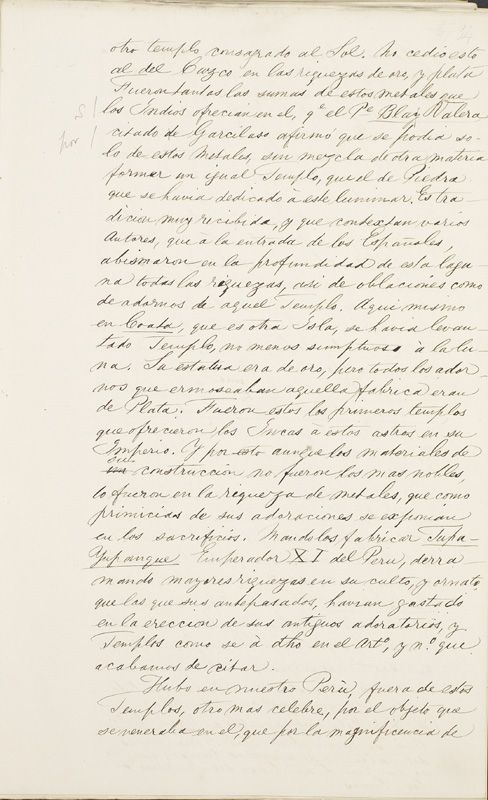 otro templo consagrado al Sol. No cedio esto
al del Cuzco en las riquezas de oro, y plata
Fueron tantas las sumas de estos metales que
los Indios ofrecian en el, qe el Pe Blas Valera
S/
citado de Garcilaso afirmó que se podia so-
por/
lo de estos metales, sin mezcla de otra materia
formar un igual Templo, que el de Piedra
que se havia dedicado à este luminar. Es tra-
dicion muy recibida, y que contextan varios
Autores, que à la entrada de los Españoles,
abismaron en la profundidad de esta lagu-
na todas las riquezas, asi de oblaciones como
de adornos de aquel Templo. Aqui mismo
en Coata, que es otra Isla, se havia levan-
tado Templo, no menos sumptuoso à la lu-
na. La estatua era de oro, pero todos los ador-
nos que ermoseaban aquella fabrica eran
de Plata. Fueron estos los primeros templos
que ofrecieron los Incas à estos astros en su
Imperio. Y por esto aunque los materiales de
su construccion no fueron los mas nobles,
lo fueron en la riqueza de metales, que como
primicias de sus adoraciones se exponian
en los sacrificios. Mandolos fabricar Tupa-
Yupanque Emperador XI del Peru, derra-
mando mayores riquezas en su culto, y ornato,
que las que sus antepasados, havian gastado
en la ereccion de sus antiguos adoratorios, y
Templos como se à dho en el Arto, y n.o que
acabamos de citar.
Hubo en nuestro Perù, fuera de estos
Templos, otro mas celebre, por el objeto que
se veneraba en el, que por la magnificencia de